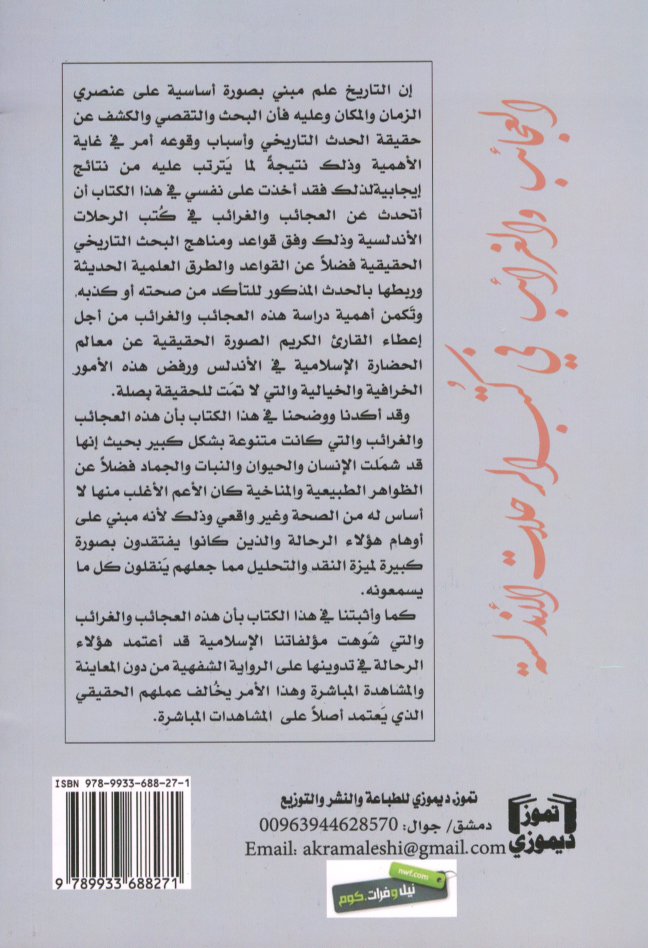 العجائب والغرائب في كتب الرحلات الأندلسية
إن التاريخ علم مبني بصورة أساسية على عنصري
الزمان والمكان وعليه فأن البحث والتقصي والكشف عن
حقيقة الحدث التاريخي وأسباب وقوعه أمر في غاية
الأهمية وذلك نتيجةً لما يَترتب عليه من نتائج
إيجابيةلذلك فقد أخذت على نفسي في هذا الكتاب أن
أتحدث عن العجائب والغرائب في كُتب الرحلات
الأندلسية وذلك وفق قواعد ومناهج البحث التاريخي
الحقيقية فضلاً عن القواعد والطرق العلمية الحديثة
وربطها بالحدث المذكور للتأكد من صحته أو كذبه.
وتَكمن أهمية دراسة هذه العجائب والغرائب من أجل
إعطاء القارئ الكريم الصورة الحقيقية عن معالم
الحضارة الإسلامية في الأندلس ورفض هذه الأمور
الخرافية والخيالية والتي لا تمَت للحقيقة بصلة.
وقد أكدنا ووضحنا في هذا الكتاب بأن هذه العجائب
والغرائب والتي كانت متنوعة بشكل كبير بحيث إنها
قد شمَلت الإنسان والحيوان والنبات والجماد فضلاً عن
الظواهر الطبيعية والمناخية كان الأعم الأغلب منها لا
أساس له من الصحة وغير واقعي وذلك لأنه مبني على
أوهام هؤلاء الرحالة والذين كانوا يفتقدون بصورة
كبيرة لميزة النقد والتحليل مما جعلهم يَنقلون كل ما
يسمعونه.
كما وأثبتنا في هذا الكتاب بأن هذه العجائب والغرائب
والتي شَوهت مؤلفاتنا الإسلامية قد أعتمد هؤلاء
الرحالة في تدوينها على الرواية الشفهية من دون المعاينة
والمشاهدة المباشرة وهذا الأمر يخُالف عملهم الحقيقي
الذي يَعتمد أصلاً على المشاهدات المباشرة.
ISBN 978-9933-688-27-1
9 789933 688271
تموز ديموزي للطباعة والنشر والتوزيع
دمشق/ جوال: 00963944628570
Email: akramaleshi@gmail.com
تموز
ديموزي
nwf.com
نيل وفرات.كوم